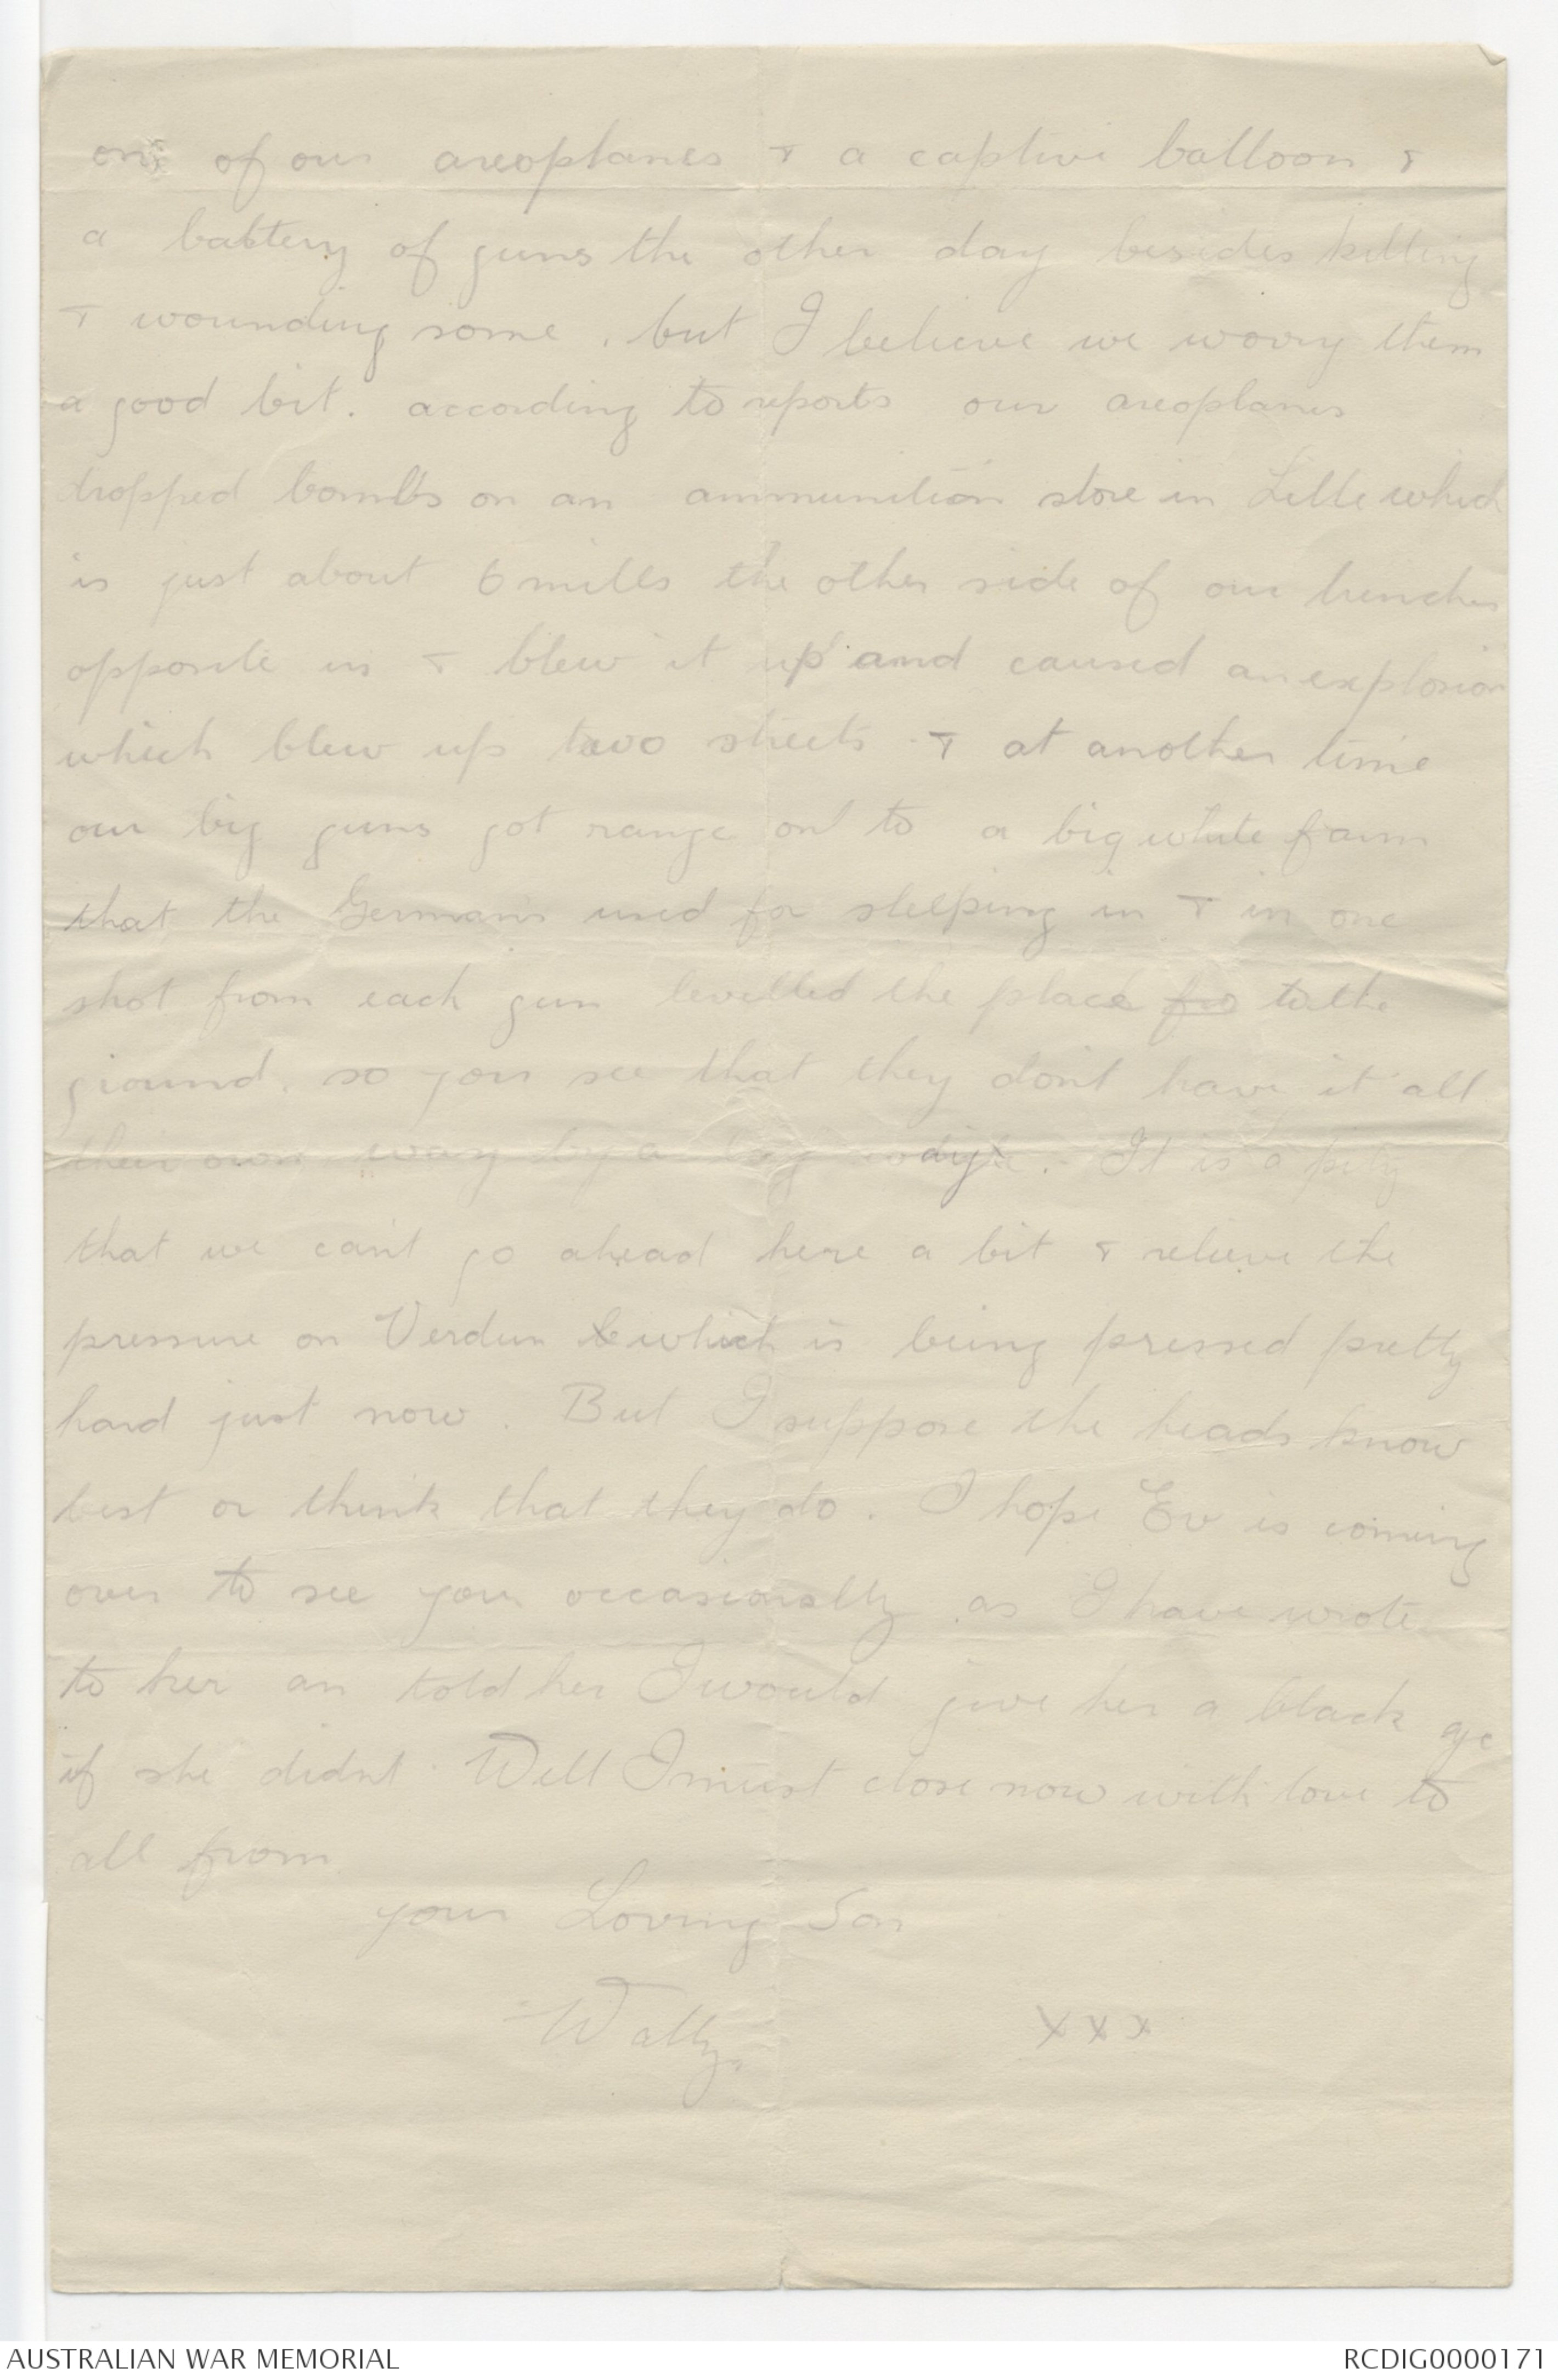 one of our areoplanes & a captive balloon &
a battery of guns the other day besides killing
& wounding some, but I believe we worry them
a good bit. according to reports our areoplanes
dropped bombs on an ammunition store in Lille which
is just about 6 milles the other side of our trenches
opposite us & blew it up and caused an explosion
which blew up two streets & at another time
our big guns got range on to a big white farm
that the Germans used for sleeping in & in one
shot from each gun levelled the place to the
ground. so you see that they don't have it all
their own way by a long . It is a pity
that we can't go ahead here a bit & relieve the
pressure on Verdun which is being pressed pretty
hard just now. But I suppose the heads know
best or think that they do. I hope Ev is coming
over to see you occasionally as I have wrote
to her an told her I would give her a black eye
if she didnt. Well I must close now with love to
all from
your Loving Son
Wally.
x x x
AUSTRALIAN WAR MEMORIAL
RCDIG0000171